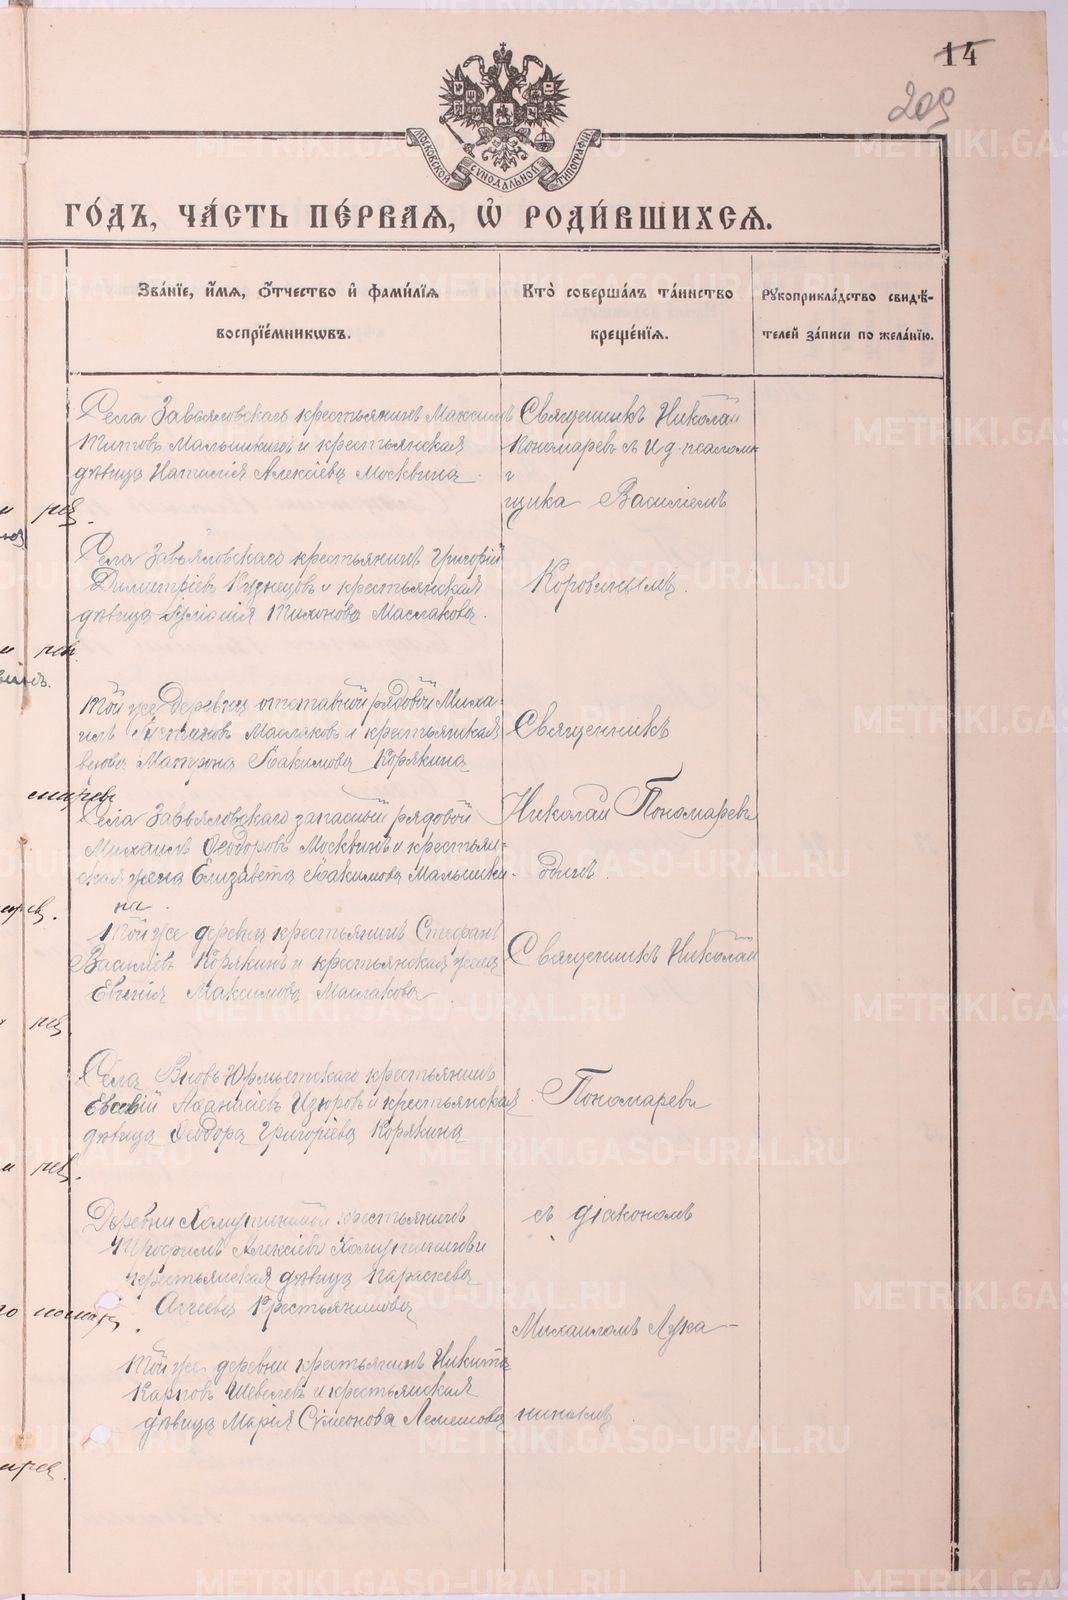 14
209
МОСКОВСКОЙ СУНОДАЛЬНОЙ ТИПОГРАФІИ
ГО́ДЪ, ЧА́СТЬ ПЕ́РВАѦ, Ѡ҆ РОДИ́ВШИХСѦ.
Зва́нїе, и҆́мѧ, ѻ҆́тчество и҆ фами́лїѧ
воспрїе́мникѡвъ.
Кто̀ соверша́лъ та́инство
креще́нїѧ.
Рꙋкоприкла́дство свидѣ́-
телей за́писи по жела́нїю.
Села Завьяловскаго крестьянинъ Максимъ
Титовъ Малышкинъ и крестьянская
дѣвица Наталія Алексіева Москвина
Священникъ Николай
Пономаревъ съ И. д. псалом-
щика Василіемъ
Коровинымъ.
Села Завьяловскаго крестьянинъ Григорій
Димитріевъ Кузнецовъ и крестьянская
дѣвица Іуліанія Тихонова Маслакова.
Той же деревни отставной рядовой Миха-
илъ Маслаковъ и крестьянская
вдова Матрона Іоакимова Корякина
Священникъ
Села Завьяловскаго запасный рядовой
Михаилъ Ѳеодоровъ Москвинъ и крестьян-
ская жена Елизавета Іоакимова Малышки-
на.
Николай Пономаревъ
одинъ.
Той же деревни крестьянинъ Стефанъ
Василіевъ Корякинъ и крестьянская жена
Евгенія Максимова Маслакова
Священникъ Николай
Села Вновь-Юрмытскаго крестьянинъ
Евсевій Аѳанасіевъ Изюровъ и крестьянская
дѣвица Ѳеодора Григоріева Корякина
Пономаревъ
Деревни крестьянинъ
Трофимъ Алексіевъ и
крестьянская дѣвица Параскева
Крестьянинова
съ діакономъ
Михаиломъ Лука-
нинымъ
Той же деревни крестьянинъ Никита
Карповъ Шевелевъ и крестьянская
дѣвица Марія Сѵмеонова Лемешова
METRIKI.GASO-URAL.RU